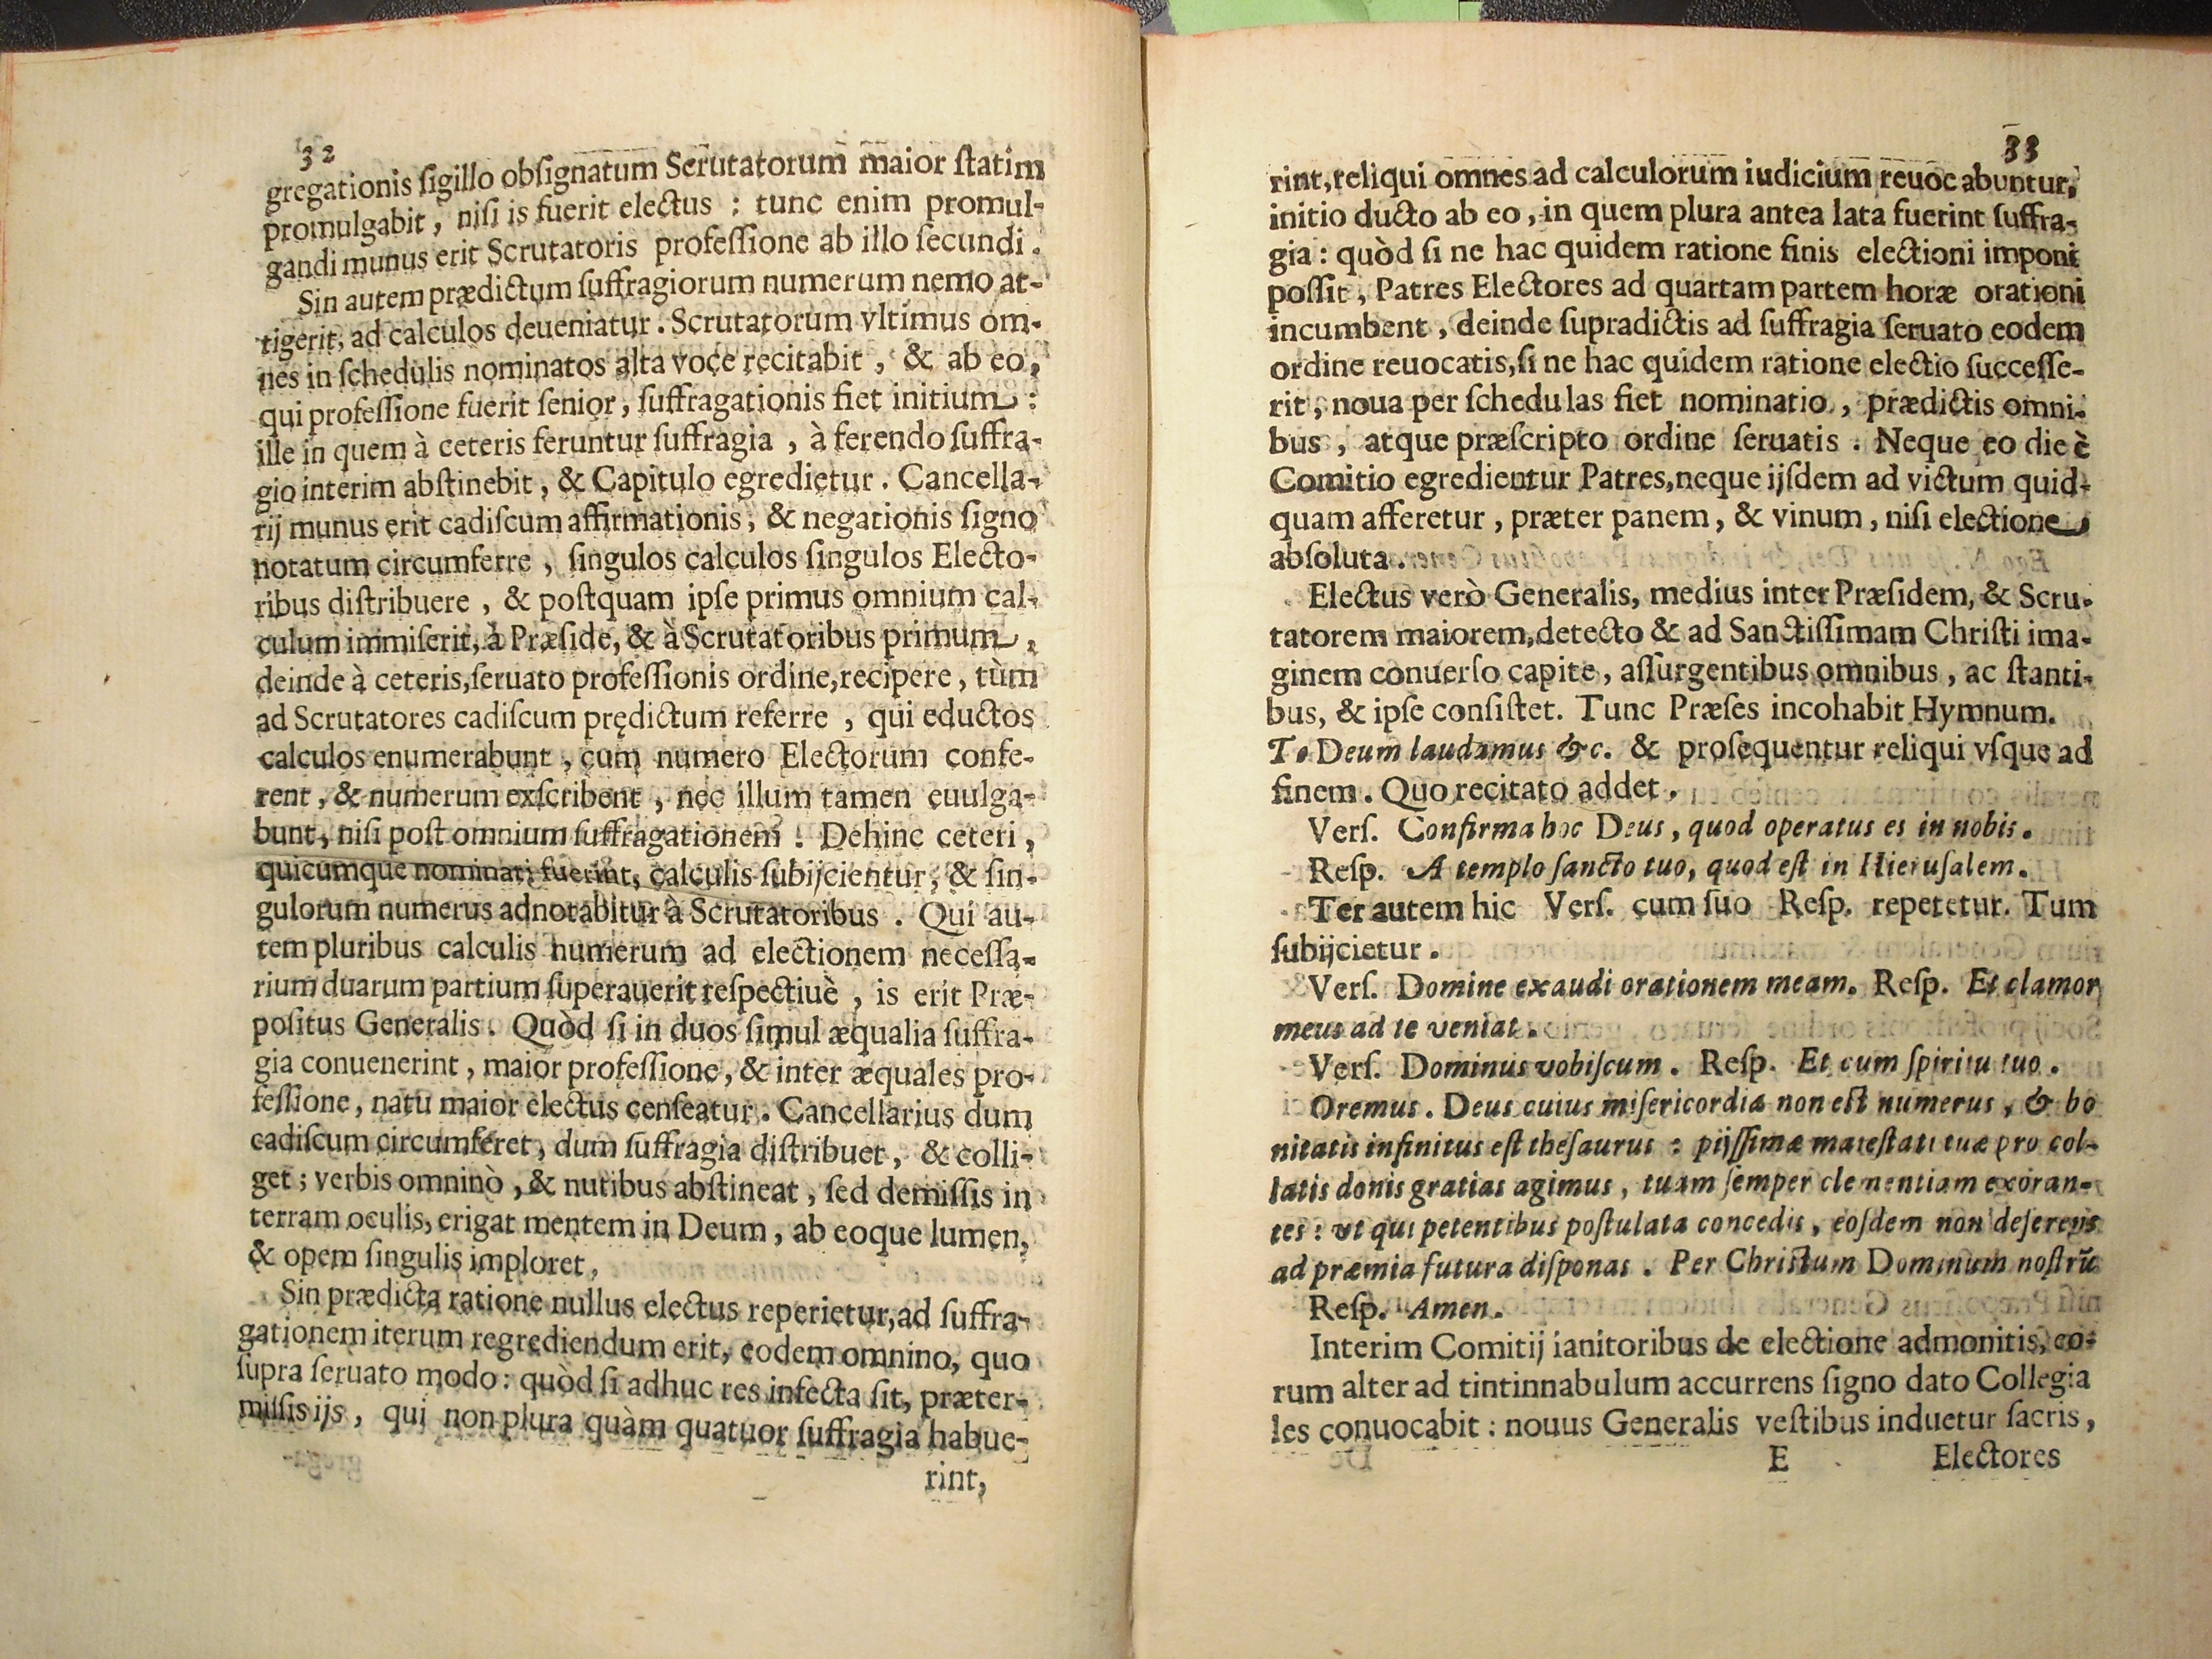 32
gregationis ſigillo obſignatum Scrutatorum maior ſtatim
promulgabit, niſi is fuerit electus : tunc enim promul-
gandi munus erit Scrutatoris profeſſione ab illo ſecundi.
Sin autem prædictum ſuffragiorum numerum nemo at-
tigerit, ad calculos deueniatur. Scrutatorum vltimus om-
nes in ſchedulis nominatos alta voce recitabit, & ab eo,
qui profeſſione fuerit ſenior, ſuffragationis fiet initium :
ille in quem à ceteris feruntur ſuffragia, à ferendo ſuffra-
gio interim abſtinebit, & Capitulo egredietur. Cancella-
rij munus erit cadiſcum affirmationis, & negationis ſigno
notatum circumferre, ſingulos calculos ſingulos Electo-
ribus diſtribuere, & poſtquam ipſe primus omnium cal-
culum immiſerit, à Præſide, & à Scrutatoribus primum,
deinde à ceteris, ſeruato profeſſionis ordine, recipere, tùm
ad Scrutatores cadiſcum prędictum referre, qui eductos
calculos enumerabunt, cum numero Electorum confe-
rent, & numerum exſcribent, nec illum tamen euulga-
bunt, niſi poſt omnium ſuffragationem. Dehinc ceteri,
quicumque nominati fuerint, calculis ſubijcientur, & ſin-
gulorum numerus adnotabitur à Scrutatoribus. Qui au-
tem pluribus calculis numerum ad electionem neceſſa-
rium duarum partium ſuperauerit reſpectiuè, is erit Præ-
poſitus Generalis. Quòd ſi in duos ſimul æqualia ſuffra-
gia conuenerint, maior profeſſione, & inter æquales pro-
feſſione, natu maior electus cenſeatur. Cancellarius dum
cadiſcum circumferet, dum ſuffragia diſtribuet, & colli-
get; verbis omninò, & nutibus abſtineat, ſed demiſſis in
terram oculis, erigat mentem in Deum, ab eoque lumen,
& opem ſingulis imploret,
Sin prædicta ratione nullus electus reperietur, ad ſuffra-
gationem iterum regrediendum erit, eodem omnino, quo
ſupra ſeruato modo: quòd ſi adhuc res infecta ſit, præter-
miſſis ijs, qui non plura quàm quatuor ſuffragia habue-
rint,
33
rint, reliqui omnes ad calculorum iudicium reuocabuntur,
initio ducto ab eo, in quem plura antea lata fuerint ſuffra-
gia: quòd ſi ne hac quidem ratione finis electioni imponi
poſſit, Patres Electores ad quartam partem horæ orationi
incumbent, deinde ſupradictis ad ſuffragia ſeruato eodem
ordine reuocatis, ſi ne hac quidem ratione electio ſucceſſe-
rit, noua per ſchedulas fiet nominatio, prædictis omni-
bus, atque præſcripto ordine ſeruatis. Neque eo die è
Comitio egredientur Patres, neque ijſdem ad victum quid-
quam afferetur, præter panem, & vinum, niſi electione
abſoluta.
Electus verò Generalis, medius inter Præſidem, & Scru-
tatorem maiorem, detecto & ad Sanctiſſimam Chriſti ima-
ginem conuerſo capite, aſſurgentibus omnibus, ac ſtanti-
bus, & ipſe conſiſtet. Tunc Præſes incohabit Hymnum.
Te Deum laudamus &c. & proſequentur reliqui vſque ad
finem. Quo recitato addet.
Verſ. Confirma hoc Deus, quod operatus es in nobis.
Reſp. A templo ſancto tuo, quod eſt in Hieruſalem.
Ter autem hic Verſ. cum ſuo Reſp. repetetur. Tum
ſubijcietur.
Verſ. Domine exaudi orationem meam. Reſp. Et clamor
meus ad te veniat.
Verſ. Dominus vobiſcum. Reſp. Et cum ſpiritu tuo.
Oremus. Deus cuius miſericordiæ non eſt numerus, & bo
nitatis infinitus eſt theſaurus : pijſſimæ maieſtati tuæ pro col-
latis donis gratias agimus, tuam ſemper clementiam exoran-
tes: ut qui petentibus poſtulata concedis, eoſdem non deſerens
ad præmia futura diſponas. Per Chriſtum Dominum noſtrũ
Reſp. Amen.
Interim Comitij ianitoribus de electione admonitis, eo-
rum alter ad tintinnabulum accurrens ſigno dato Collegia
les conuocabit: nouus Generalis veſtibus induetur ſacris,
E Electores